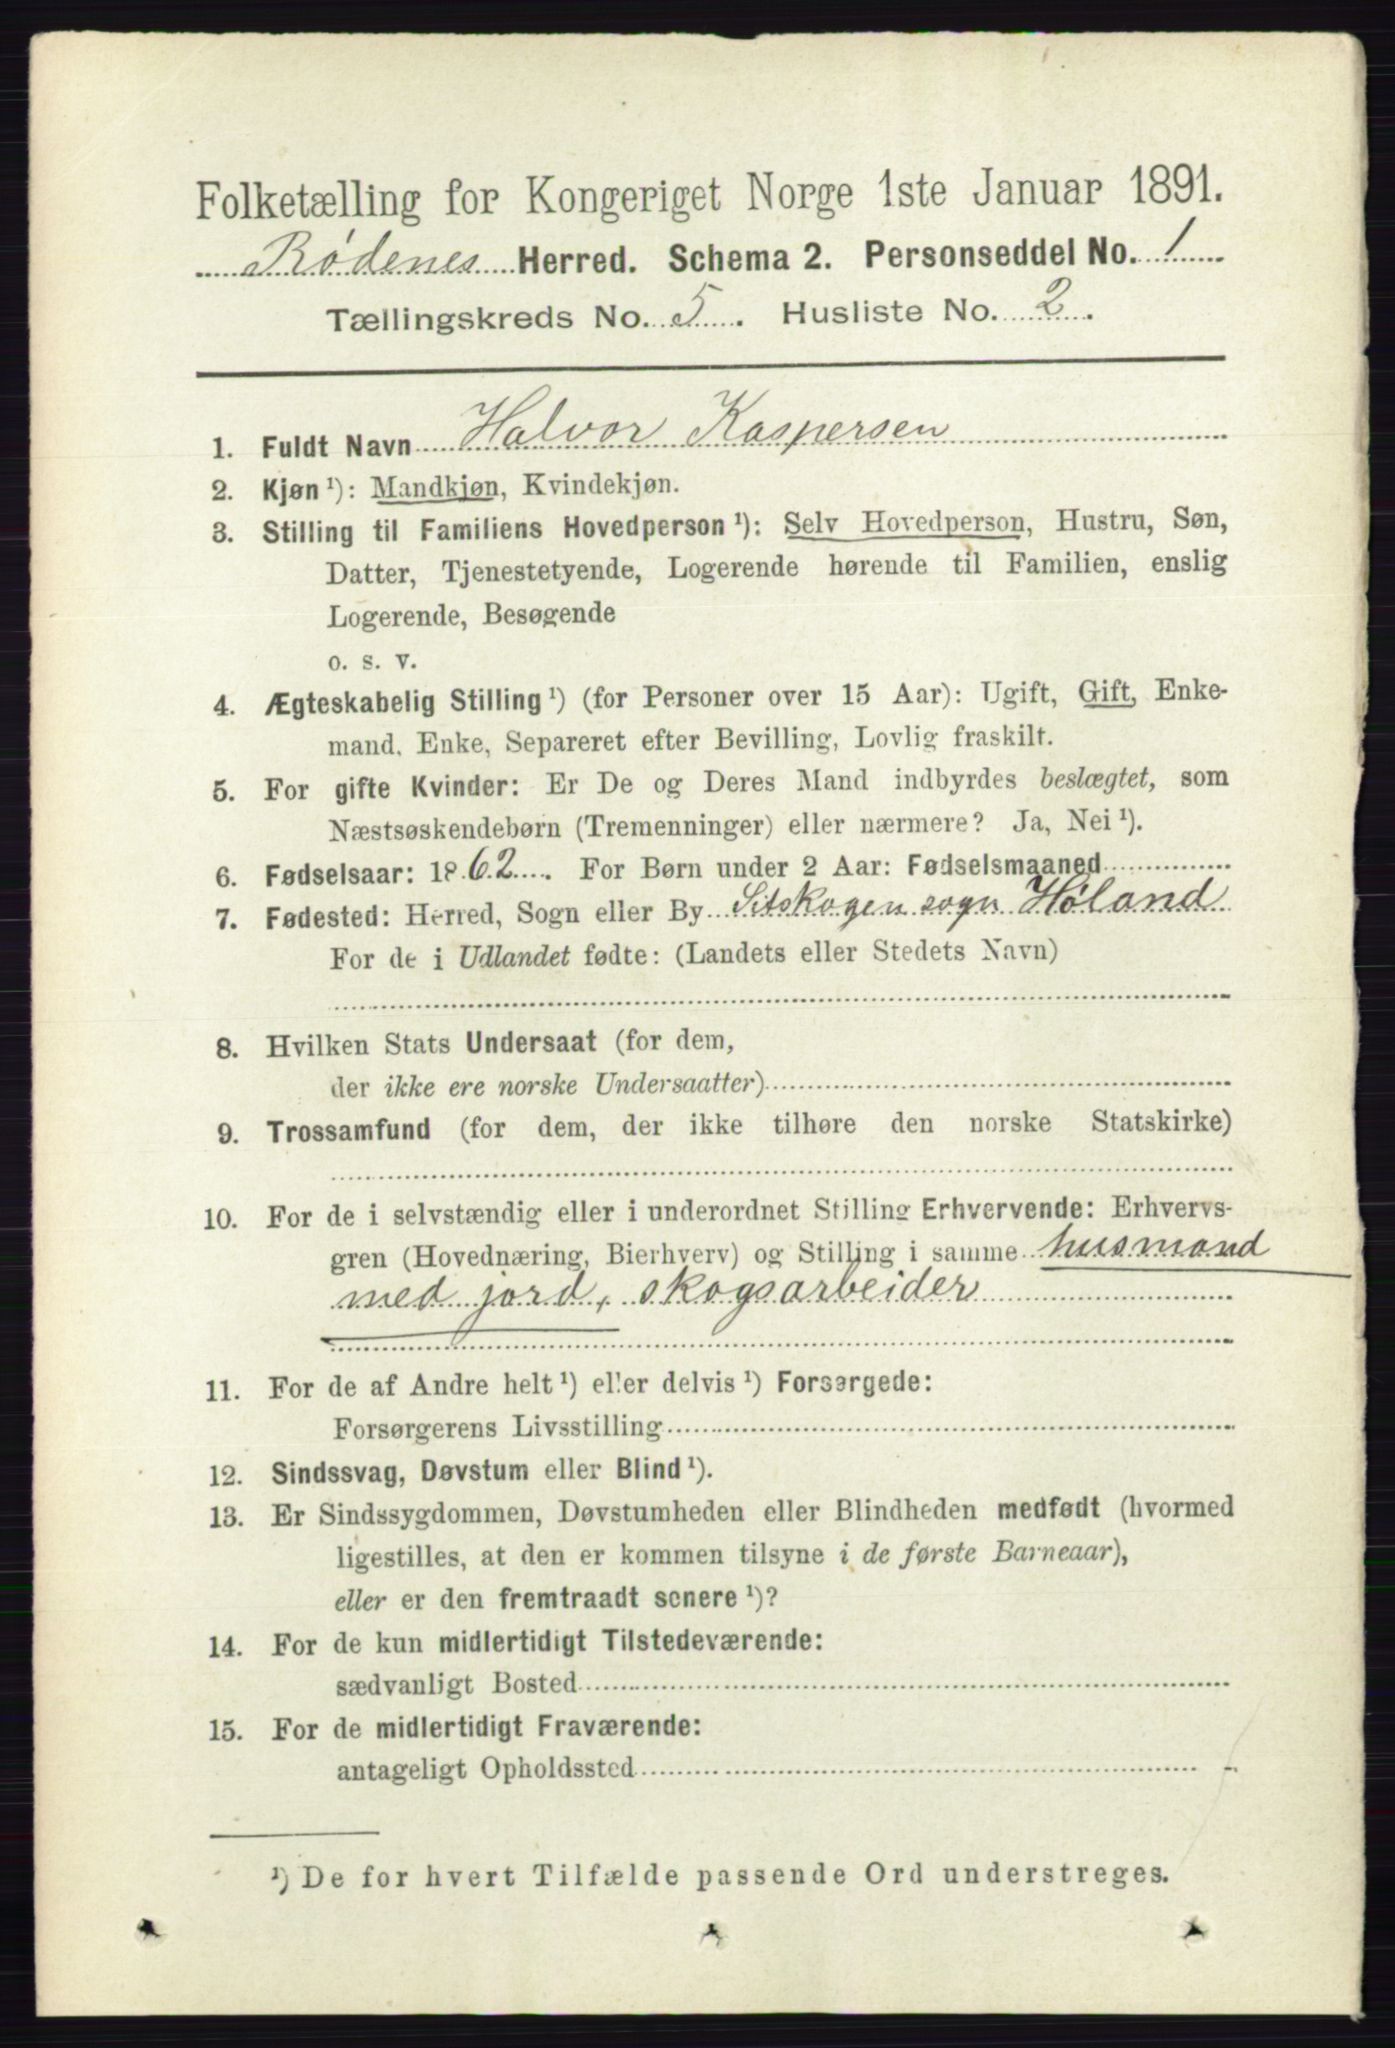 Folketælling for Kongeriget Norge 1ste Januar 1891.
Rødenes Herred. Schema 2. Personseddel No. 1
Tællingskreds No. 5. Husliste No. 2.
1. Fuldt Navn Halvor Kaspersen
2. Kjøn ¹): Mandkjøn, Kvindekjøn.
3. Stilling til Familiens Hovedperson ¹): Selv Hovedperson, Hustru, Søn,
Datter, Tjenestetyende, Logerende hørende til Familien, enslig
Logerende, Besøgende
o. s. v.
4. Ægteskabelig Stilling ¹) (for Personer over 15 Aar): Ugift, Gift, Enke-
mand, Enke, Separeret efter Bevilling, Lovlig fraskilt.
5. For gifte Kvinder: Er De og Deres Mand indbyrdes beslægtet, som
Næstsøskendebørn (Tremenninger) eller nærmere? Ja, Nei ¹).
6. Fødselsaar: 1862. For Børn under 2 Aar: Fødselsmaaned
7. Fødested: Herred, Sogn eller By Sitskogen sogn Høland
For de i Udlandet fødte: (Landets eller Stedets Navn)
8. Hvilken Stats Undersaat (for dem,
der ikke ere norske Undersaatter)
9. Trossamfund (for dem, der ikke tilhøre den norske Statskirke)
10. For de i selvstændig eller i underordnet Stilling Erhvervende: Erhvervs-
gren (Hovednæring, Bierhverv) og Stilling i samme husmand
med jord, skogsarbeider
11. For de af Andre helt ¹) eller delvis ¹) Forsørgede:
Forsørgerens Livsstilling
12. Sindssvag, Døvstum eller Blind ¹).
13. Er Sindssygdommen, Døvstumheden eller Blindheden medfødt (hvormed
ligestilles, at den er kommen tilsyne i de første Barneaar),
eller er den fremtraadt senere ¹)?
14. For de kun midlertidigt Tilstedeværende:
sædvanligt Bosted
15. For de midlertidigt Fraværende:
antageligt Opholdssted
¹) De for hvert Tilfælde passende Ord understreges.